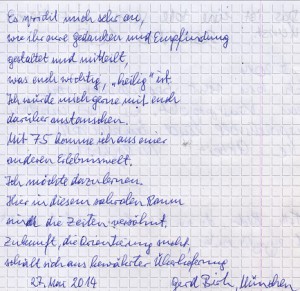 Es spricht mich sehr an,
wie ihr eure Gedanken und Empfindung
gestaltet und mitteilt,
was euch wichtig, „heilig" ist.
Ich würde mich gerne mit euch
darüber austauschen.
Mit 75 komme ich aus einer
anderen Erlebniswelt.
Ich möchte dazulernen.
Hier in diesem sakralen Raum
sind die Zeiten versöhnt.
Zukunft, die Orientierung sucht,
schält sich aus bewährter Überlieferung
27. Mai 2014 Gerd, München